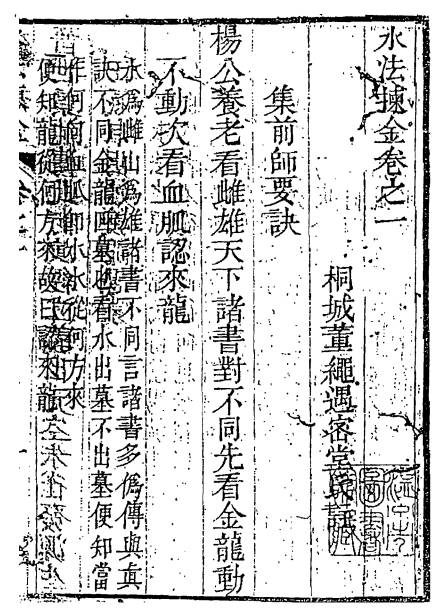 水法揀金卷之一
桐城董繩遇客堂氏
集前師要訣
楊公養老看雌雄天下諸書對不同先看金龍動
不動次看血脈認來龍
水爲雌山爲雄諸書不同言諸書多僞傳與真
訣不同金龍即墓也看水出墓不出墓便知當
作何向血脈即小水從何方來
便知龍從何方來故曰認來龍